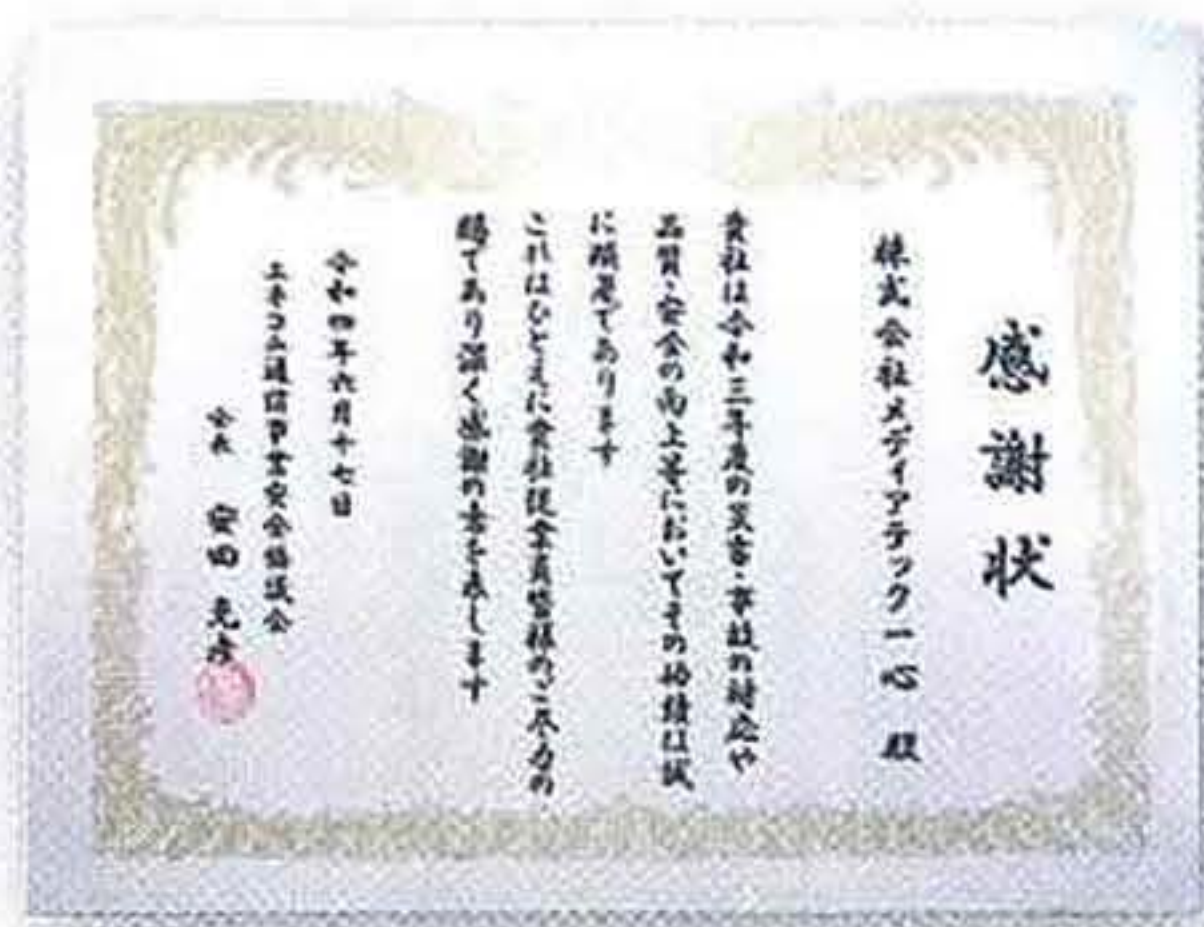 感謝状
株式会社メディアテック一心 殿
貴社は令和三年度の災害・事故の対応や
品質・安全の向上等においてその功績は誠
に顕著であります
これはひとえに貴社従業員皆様のご尽力の
賜であり深く感謝の意を表します
令和四年六月十七日
エネコム通信事業安全協議会
会長 安田 克彦